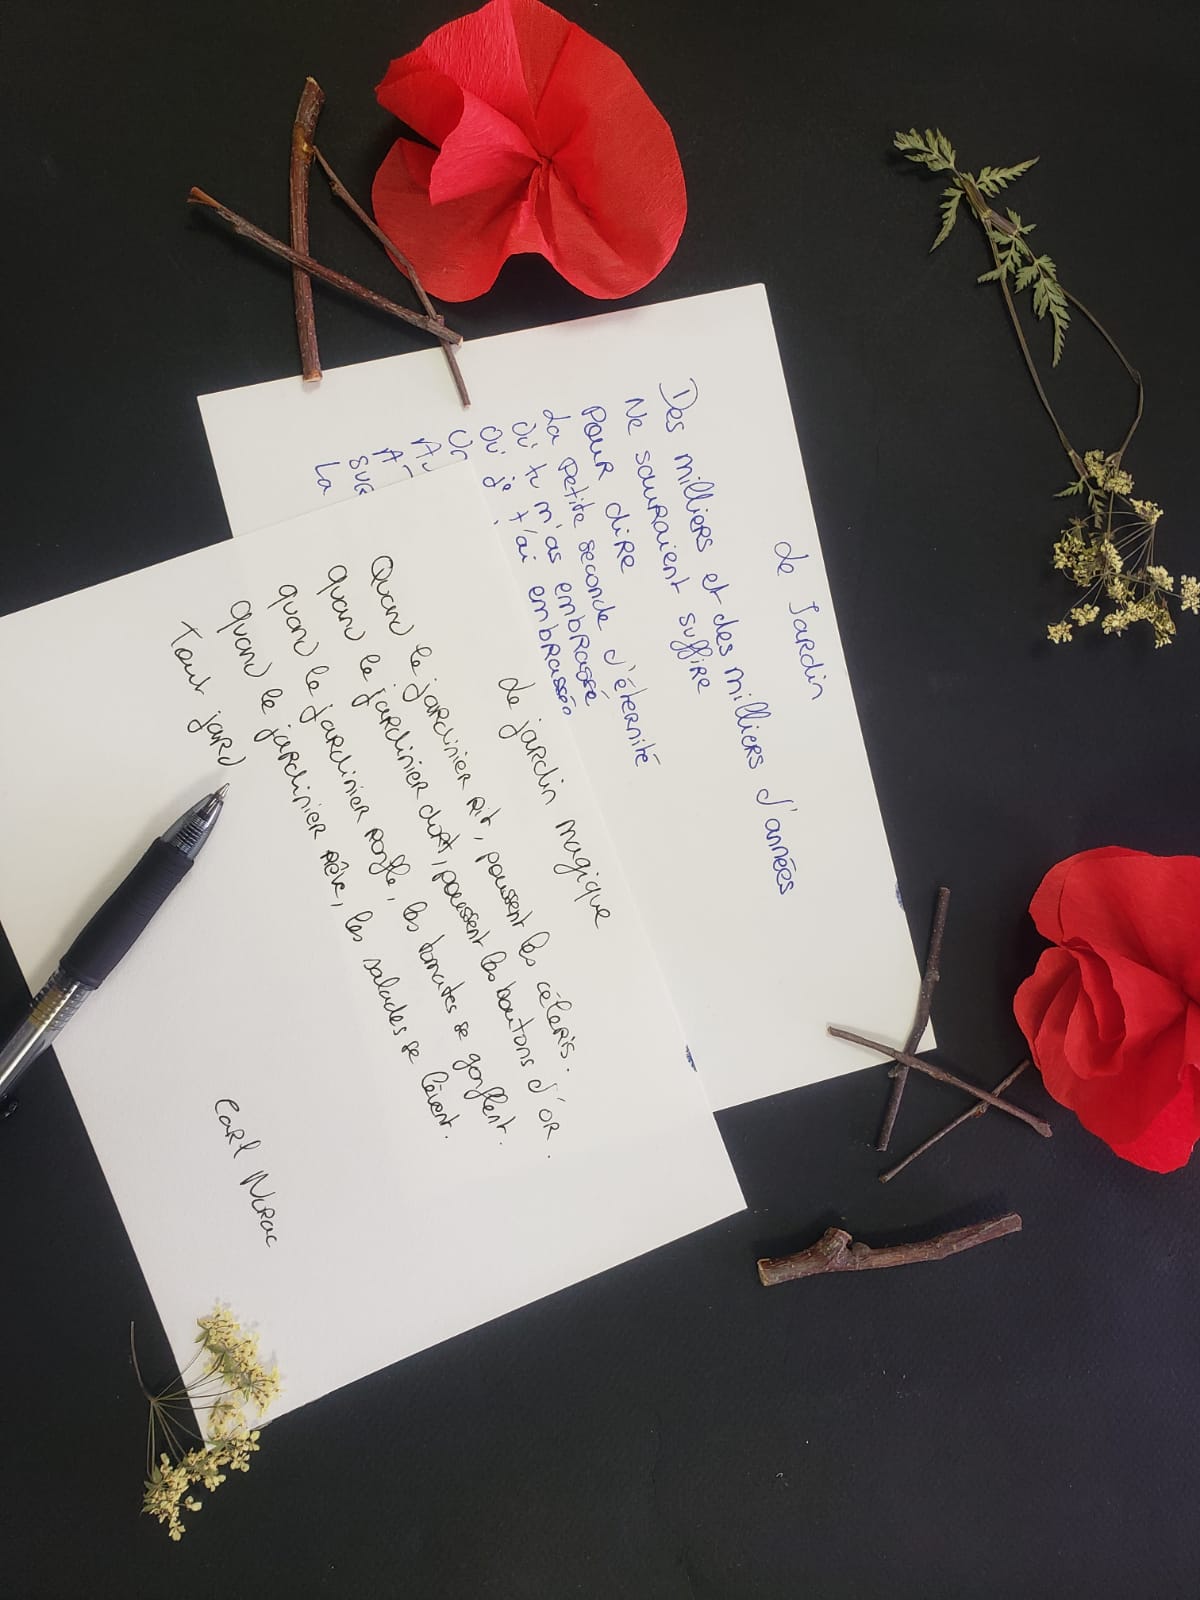 Le Jardin
Des milliers et des milliers d'années
Ne sauraient suffire
Pour dire
La petite seconde d'éternité
Où tu m'as embrassé
Où je t'ai embrassée
A
Sur
La
Le jardin magique
Quand le jardinier rit, poussent les céleris.
Quand le jardinier dort, poussent les boutons d'or.
Quand le jardinier ronfle, les tomates se gonflent.
Quand le jardinier rêve, les salades se lèvent.
Tout jard
Carl Norac